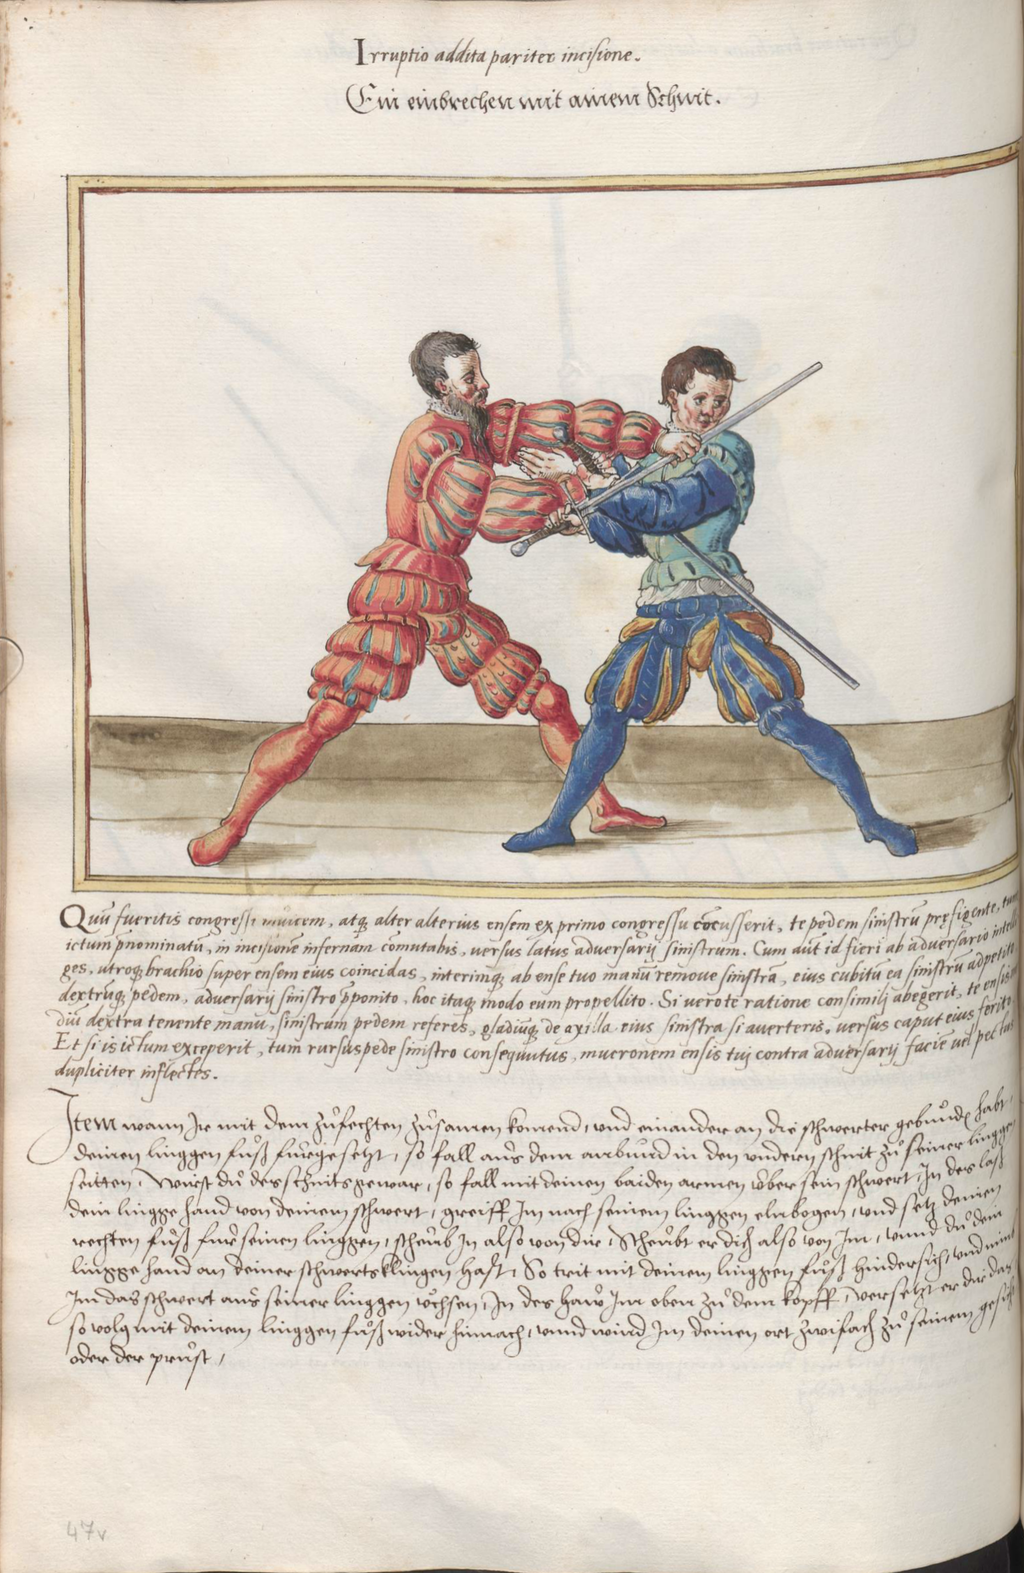 Irruptio addita pariter incisione.
Ein einbrechen mit ainem Schnit.
Quũ fueritis congressi invicem, atq; alter alterius ensem ex primo congressu cõcusserit, te pedem sinistrũ prefigente, tum
ictum pnominatũ, in incisionẽ infernam comutabis, versus latus adversarij sinistrum. Cum aũt id fieri ab adversario intelli
ges, utroq; brachio super ensem eius coincidas, interimq; ab ense tuo manũ remove sinistrã, eius cubitũ ea sinistrũ adpetito
dextrũq; pedem, adversarij sinistro ꝓponito, hoc itaq; modo eum propellito. Si vero te ratione consimilj abegerit, te ensis
diũ dextra tenente manu, sinistrum pedem referes, gladiũq; de axilla eius sinistra si averteris, versus caput eius ferito
Et si is ictum exceperit, tum rursus pede sinistro consequutus, mucronem ensis tuj contra adversarij faciẽ vel pectus
dupliciter inflectes.
Item wann Ir mit dem zůfechten zůsamen komend, und einander an die schwerter gebundẽ habt,
deinen linggen fůß fürgesetzt, so fall aus dem anbund in den undern schnit zů seiner lingge
seitten, Wirst dů des schnits gewar, so fall mit deinen baiden armen über sein schwert, In des laß
dein lingge hand von deinem schwert, greiff Im nach seinem linggen elnbogen, und setz deinen
rechten fůß für seinen linggen, scheub In also von dir, Scheubt er dich also von Im, unnd dů dein
lingge hand an deiner schwertsklingen hast, So trit mit deinem linggen fůß hindersich, und nim
Im das schwert aus seiner linggen üchsen, In des haw Im oben zů dem kopff, versetzt er dir dan
so volg mit deinem linggen fůß wider hinnach, unnd wind Im deinen ort zwifach zů seinem gesicht
oder der prust,
47v